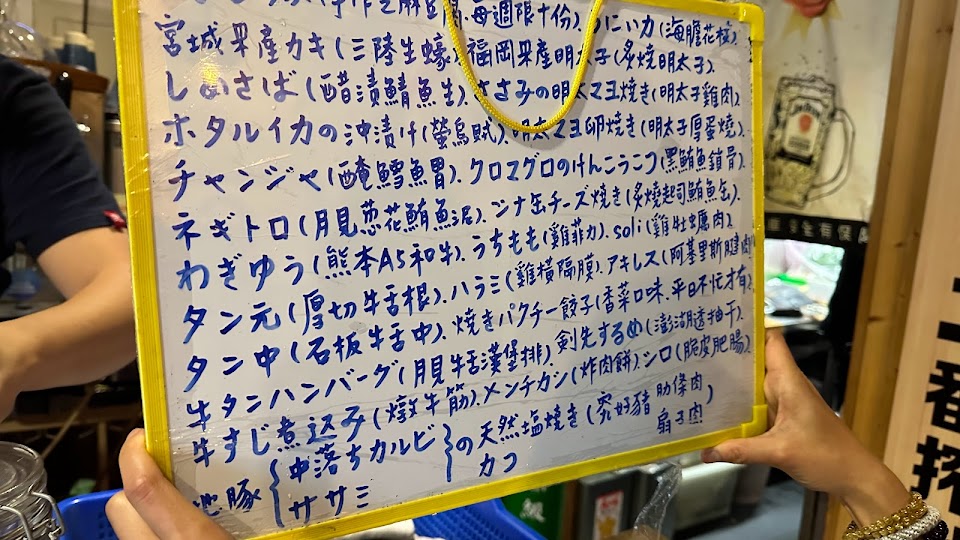 手作芝麻豆腐.每週限十份)
うにいか(海膽花枝)
宮城県産カキ(三陸生蠔).福岡県産明太子(炙焼明太子).
しめさば(醋漬鯖魚生).ささみの明太マヨ焼き(明太子雞肉).
ホタルイカの沖漬け(螢烏賊).明太マヨ卵焼き(明太子厚蛋燒).
チャンジャ(醃鱈魚胃).クロマグロのけんこうこつ(黑鮪魚鎖骨).
ネギトロ(月見葱花鮪魚泥).シナ缶チーズ焼き(炙燒起司鮪魚缶).
わぎゆう(熊本A5和牛).うちもも(雞菲力).soli(雞牡蠣肉).
タン元(厚切牛舌根).ハラミ(雞橫隔膜).アキレス(阿基里斯腱肉)
タン中(石板牛舌中).焼きパクチー餃子(香菜口味.平日不忙才有).
牛タンハンバーグ(月見牛舌漢堡排).剣先するめ(澎湖透抽干).
牛すじ煮込み(燉牛筋).メンチカシ(炸肉餅).シロ(脆皮肥腸).
地豚{中落ちカルビ ササミ カコ}の天然塩焼き(究好豬 肋條肉 扇子肉)
一番搾